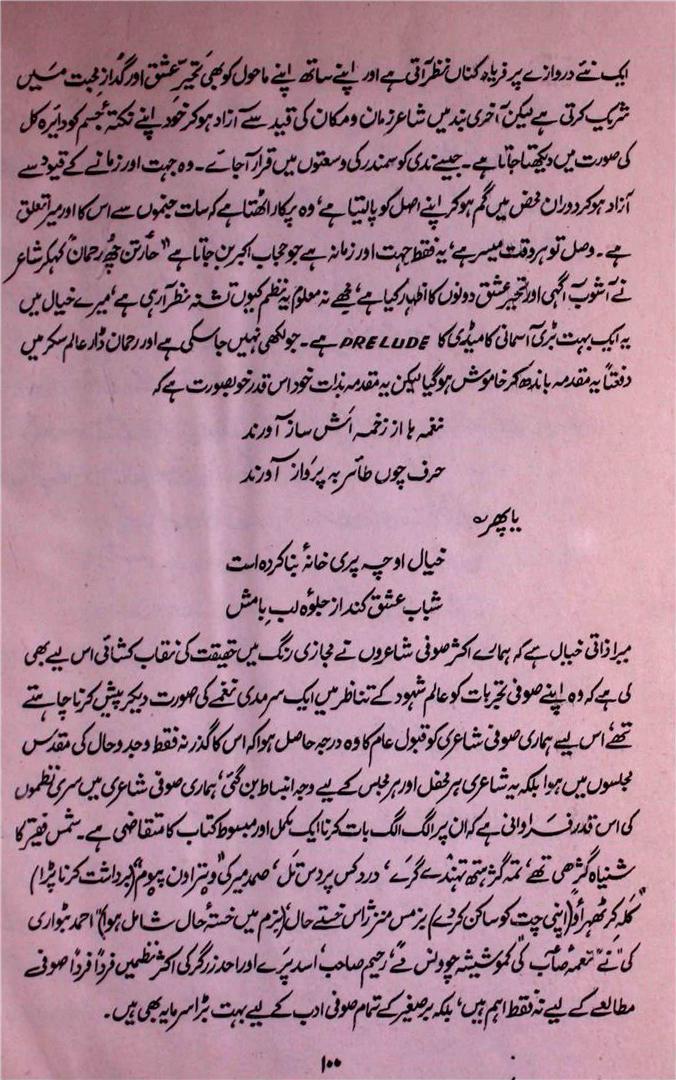 ایک نئے دروازے پر فریاد کناں نظر آتی ہے اور اپنے ساتھ اپنے ماحول کو بھی تحیرِ عشق اور گدازِ محبت میں
شریک کرتی ہے لیکن آخری بند میں شاعر زمان و مکان کی قید سے آزاد ہو کر خود اپنے نکتۂ جسم کو دائرہ کل
کی صورت میں دیکھتا جاتا ہے۔ جیسے ندی کو سمندر کی وسعتوں میں قرار آ جائے۔ وہ جہت اور زمانے کے قیود سے
آزاد ہو کر دوران محض میں گم ہو کر اپنے اصل کو پا لیتا ہے، وہ پکار اٹھتا ہے کہ سات جنموں سے اس کا اور میرا تعلق
ہے۔ وصل تو ہر وقت میسر ہے، یہ فقط جہت اور زمانہ ہے جو حجاب اکبر بن جاتا ہے "حارتن چُھ رحمان" کہکر شاعر
نے آشوبِ آگہی اور تحیر عشق دونوں کا اظہار کیا ہے، مجھے نہ معلوم یہ نظم کیوں تشنہ نظر آ رہی ہے، میرے خیال میں
یہ ایک بہت بڑی آسمانی کامیڈی کا PRELUDE ہے۔ جو لکھی نہیں جا سکی ہے اور رحمان ڈار عالم سکر میں
دفعتاً یہ مقدمہ باندھ کر خاموش ہو گیا لیکن یہ مقدمہ بذات خود اس قدر خوبصورت ہے کہ
نغمہ ہا از زخمہ اَش ساز آورند
حرف چوں طائر بہ پرواز آورند
یا پھر
خیال او چہ پری خانۂ بنا کردہ است
شباب عشق کند از جلوۂ لب بامش
میرا ذاتی خیال ہے کہ ہمارے اکثر صوفی شاعروں نے مجازی رنگ میں حقیقت کی نقاب کشائی اس لیے بھی
کی ہے کہ وہ اپنے صوفی تجربات کو عالم شہود کے تناظر میں ایک سرمدی نغمے کی صورت دیکر پیش کرنا چاہتے
تھے، اس لیے ہماری صوفی شاعری کو قبول عام کا وہ درجہ حاصل ہوا کہ اس کا گذر نہ فقط وجد و حال کی مقدس
مجلسوں میں ہوا بلکہ یہ شاعری ہر محفل اور ہر مجلس کے لیے وجہ انبساط بن گئی، ہماری صوفی شاعری میں سری نظموں
کی اس قدر فراوانی ہے کہ ان پر الگ الگ بات کرنا ایک مکمل اور مبسوط کتاب کا متقاضی ہے۔ شمس فقیر کا
شنیاہ گژھی تھے، تمہ گژھتھ تہندے گرے، درد کس پردس تل، صمد میر کی "وپتراون پیوم" (برداشت کرنا پڑا)
(اپنی چت کو ساکن کر دے) بزمس منز ژاس خستے حال، (بزم میں خستۂ حال شامل ہوا)" احمد بٹواری
کی "نے" رحیم صاحب، اسد پرے اور احد زرگر کی اکثر نظمیں فرداً فرداً صوفے
مطالعے کے لیے نہ فقط اہم ہیں، بلکہ برصغیر کے تمام صوفی ادب کے لیے بہت بڑا سرمایہ بھی ہیں۔
۱۰۰